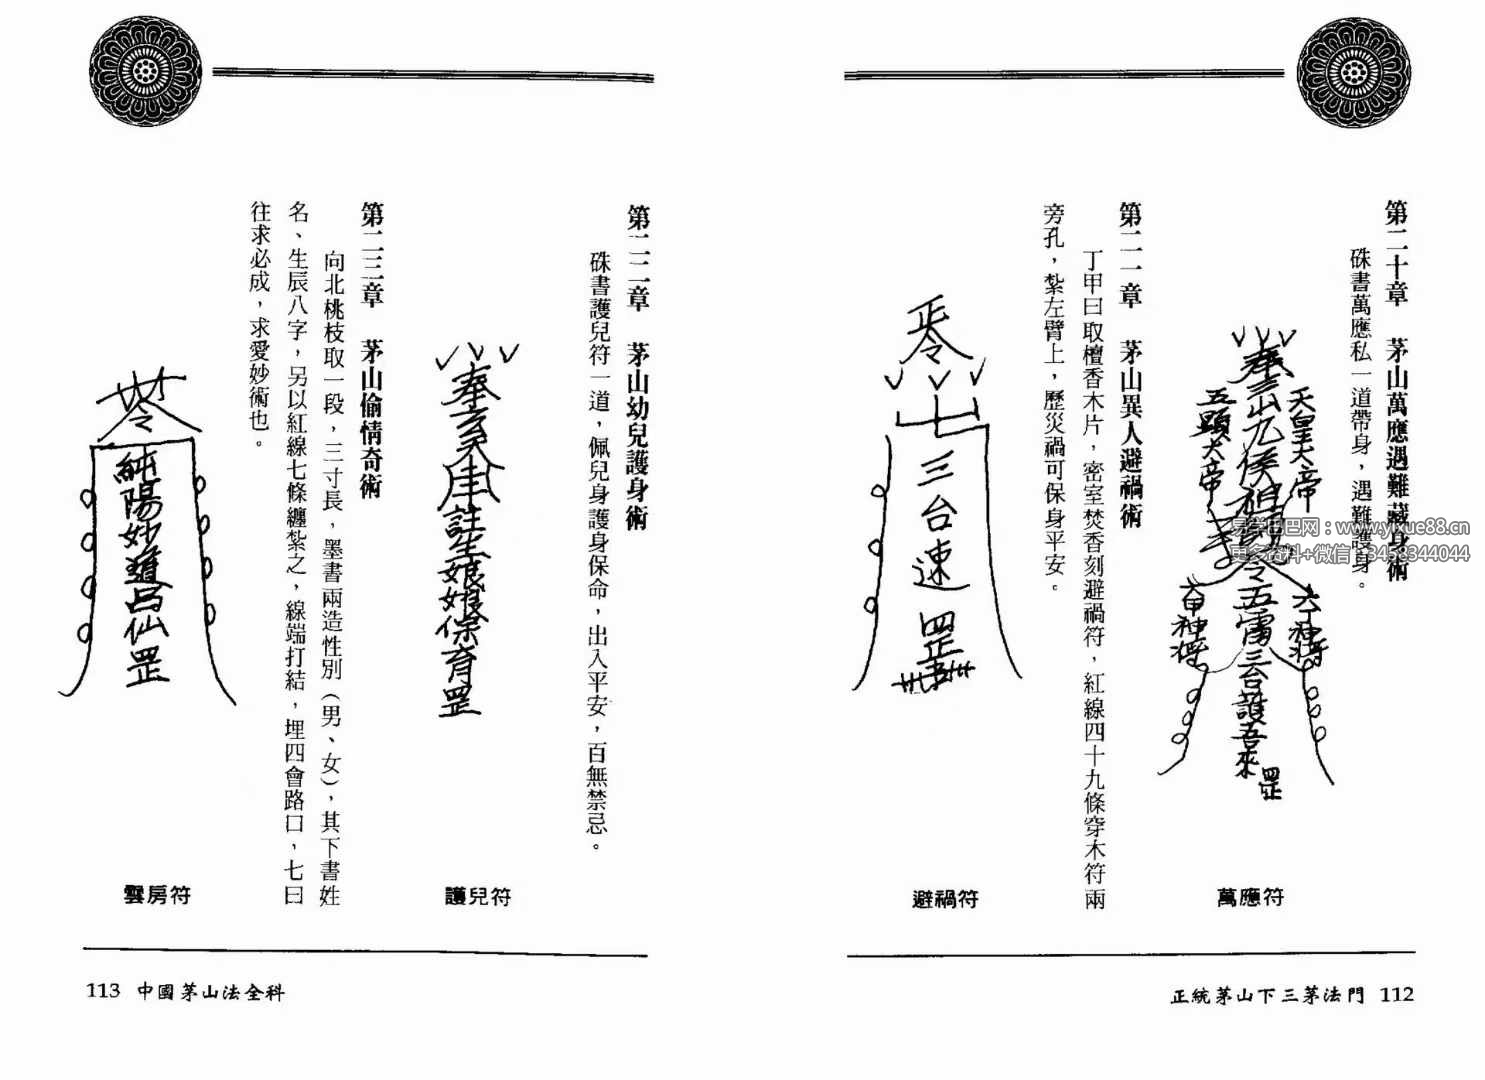 第二十章　茅山萬應遇難藏身術
硃書萬應私一道帶身，遇難護身。
天皇大帝
奉
五顯大帝
六丁神將
六甲神將
五雷三台護吾來
罡
萬應符
第二一章　茅山異人避禍術
丁甲日取檀香木片，密室焚香刻避禍符，紅線四十九條穿木符兩
旁孔，紮左臂上，歷災禍可保身平安。
三台速罡
避禍符
正統茅山下三茅法門 112
第二二章　茅山幼兒護身術
硃書護兒符一道，佩兒身護身保命，出入平安，百無禁忌。
奉玄天
註生娘娘保育罡
護兒符
第二三章　茅山偷情奇術
向北桃枝取一段，三寸長，墨書兩造性別（男、女），其下書姓
名、生辰八字，另以紅線七條纏紮之，線端打結，埋四會路口，七日
往求必成，求愛妙術也。
純陽妙道呂仙罡
雲房符
113 中國茅山法全科
易学巴巴网：www.yixue88.cn
更多资料+微信：3458344044